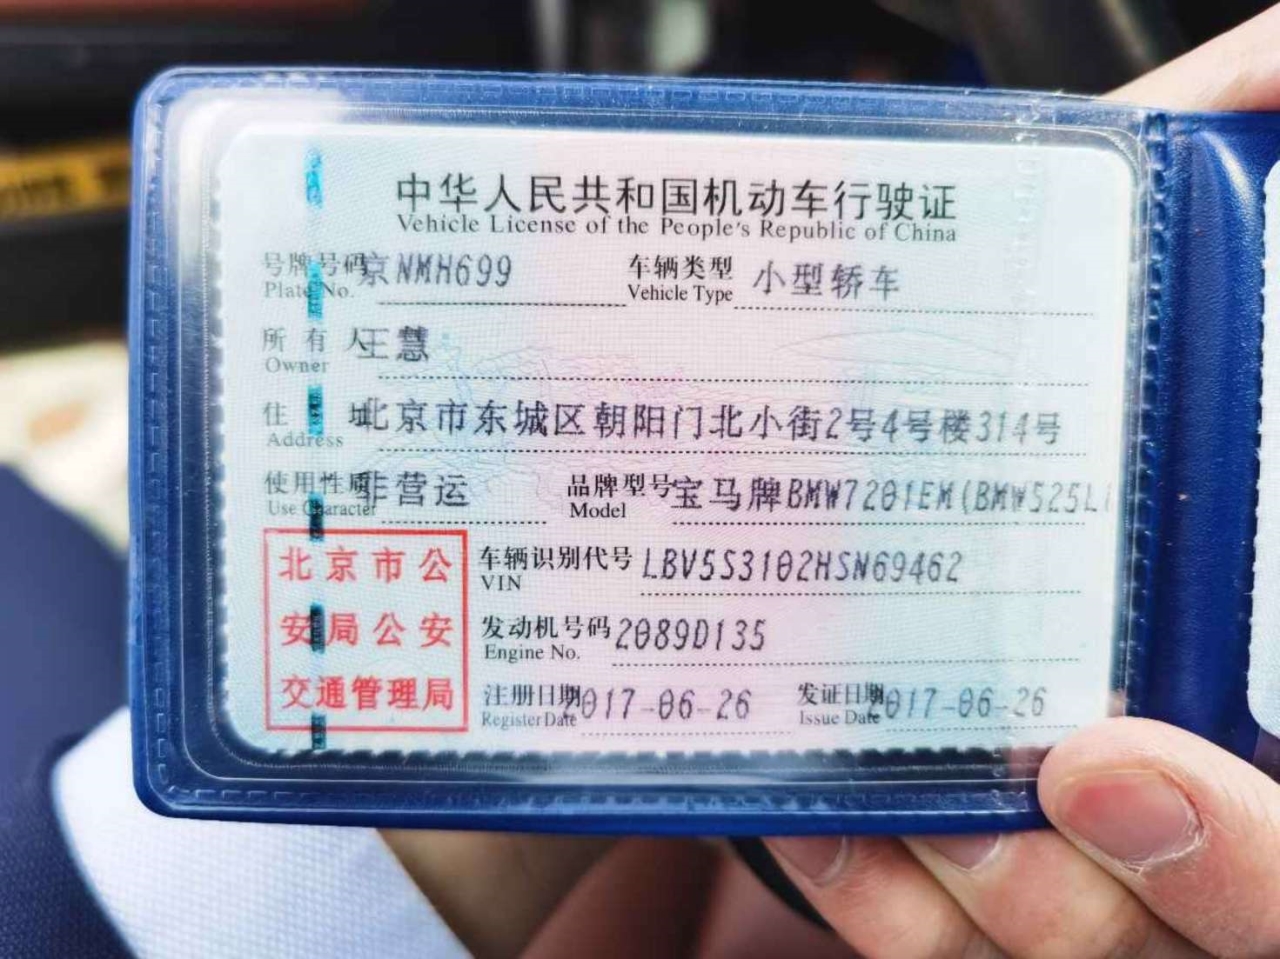 中华人民共和国机动车行驶证
Vehicle License of the People's Republic of China
号牌号码 京NMH699 车辆类型 小型轿车
Plate No. Vehicle Type
所有人 王慧
Owner
住址 北京市东城区朝阳门北小街2号4号楼314号
Address
使用性质 非营运 品牌型号 宝马牌BMW7201EM(BMW525L
Use Character Model
北京市公
安局公安
交通管理局
车辆识别代号 LBV5S3102HSN69462
VIN
发动机号码 2089D135
Engine No.
注册日期 2017-06-26 发证日期 2017-06-26
Register Date Issue Date